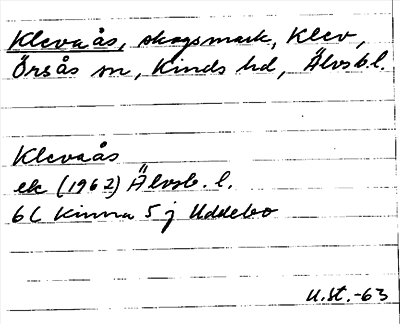 Klevaås, skogsmark, Klev,
Örsås sn, Kinds hd, Älvsb.l.
Klevaås
ek (1962) Älvsb. l.
6C Kinna 5 j Uddebo
U.St.-63